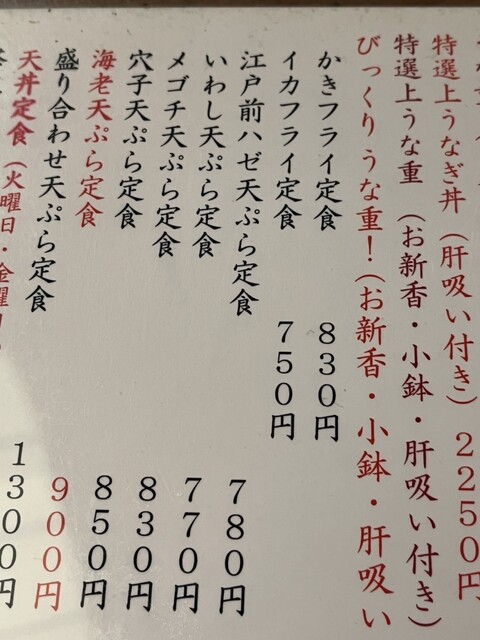 特選上うなぎ丼（肝吸い付き）2250円
特選上うな重（お新香・小鉢・肝吸い付き）
びっくりうな重！（お新香・小鉢・肝吸い
かきフライ定食 830円
イカフライ定食 750円
江戸前ハゼ天ぷら定食 780円
いわし天ぷら定食 770円
メゴチ天ぷら定食 830円
穴子天ぷら定食 850円
海老天ぷら定食 900円
盛り合わせ天ぷら定食 1300円
天丼定食（火曜日・金曜日